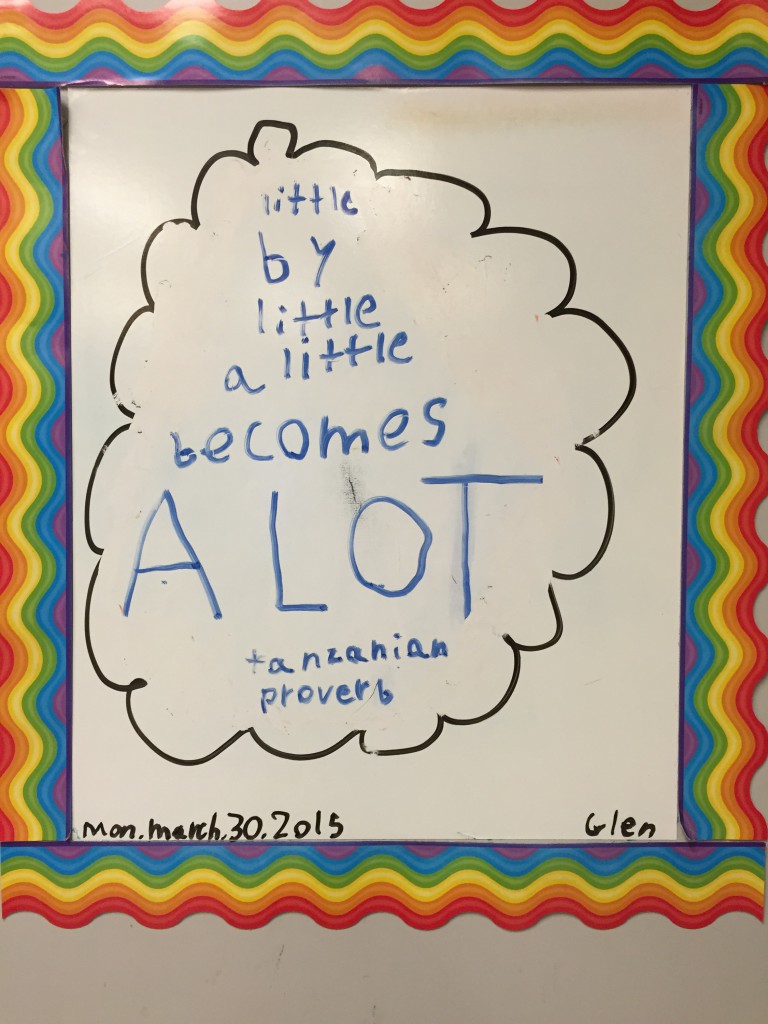 little
by
little
a little
becomes
A LOT
tanzanian
proverb
Mon. march. 30. 2015 Glen